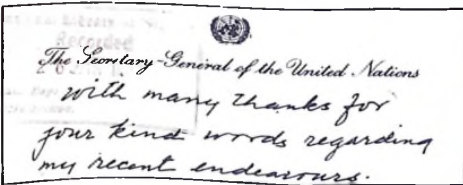 Recorded
The Secretary-General of the United Nations
with many thanks for
your kind words regarding
my recent endeavours.